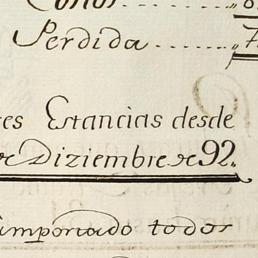 Perdida
es Estancias desde
Diziembre de 92.
importado todos